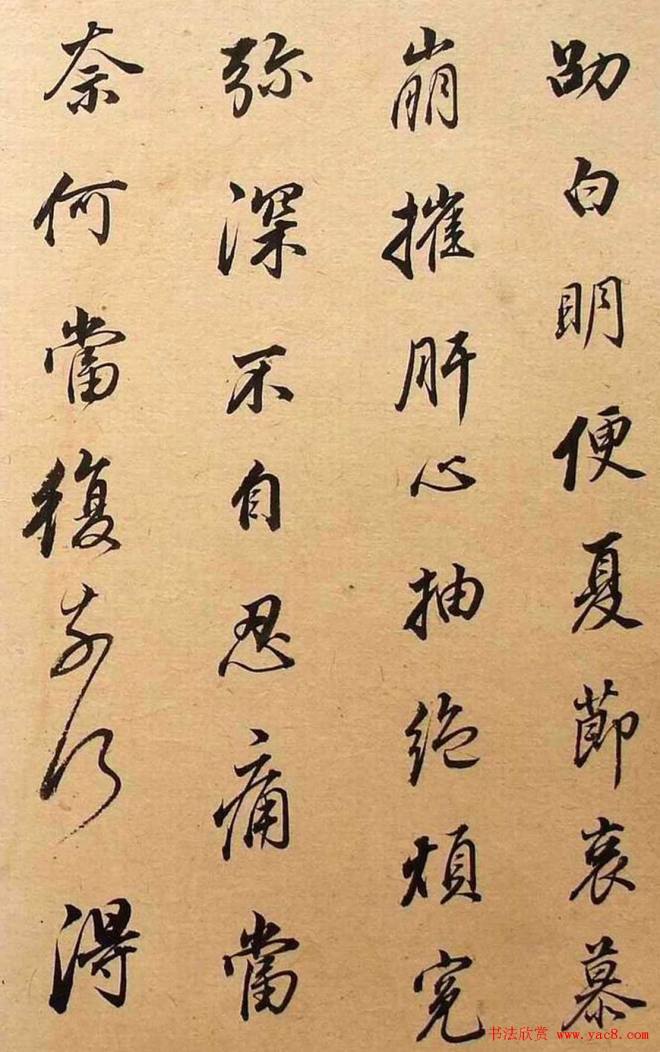 劭白明便夏節哀慕
崩摧肝心抽絕煩冤
彌深不自忍痛當
奈何當復奈何得
书法欣赏 www.yac8.com